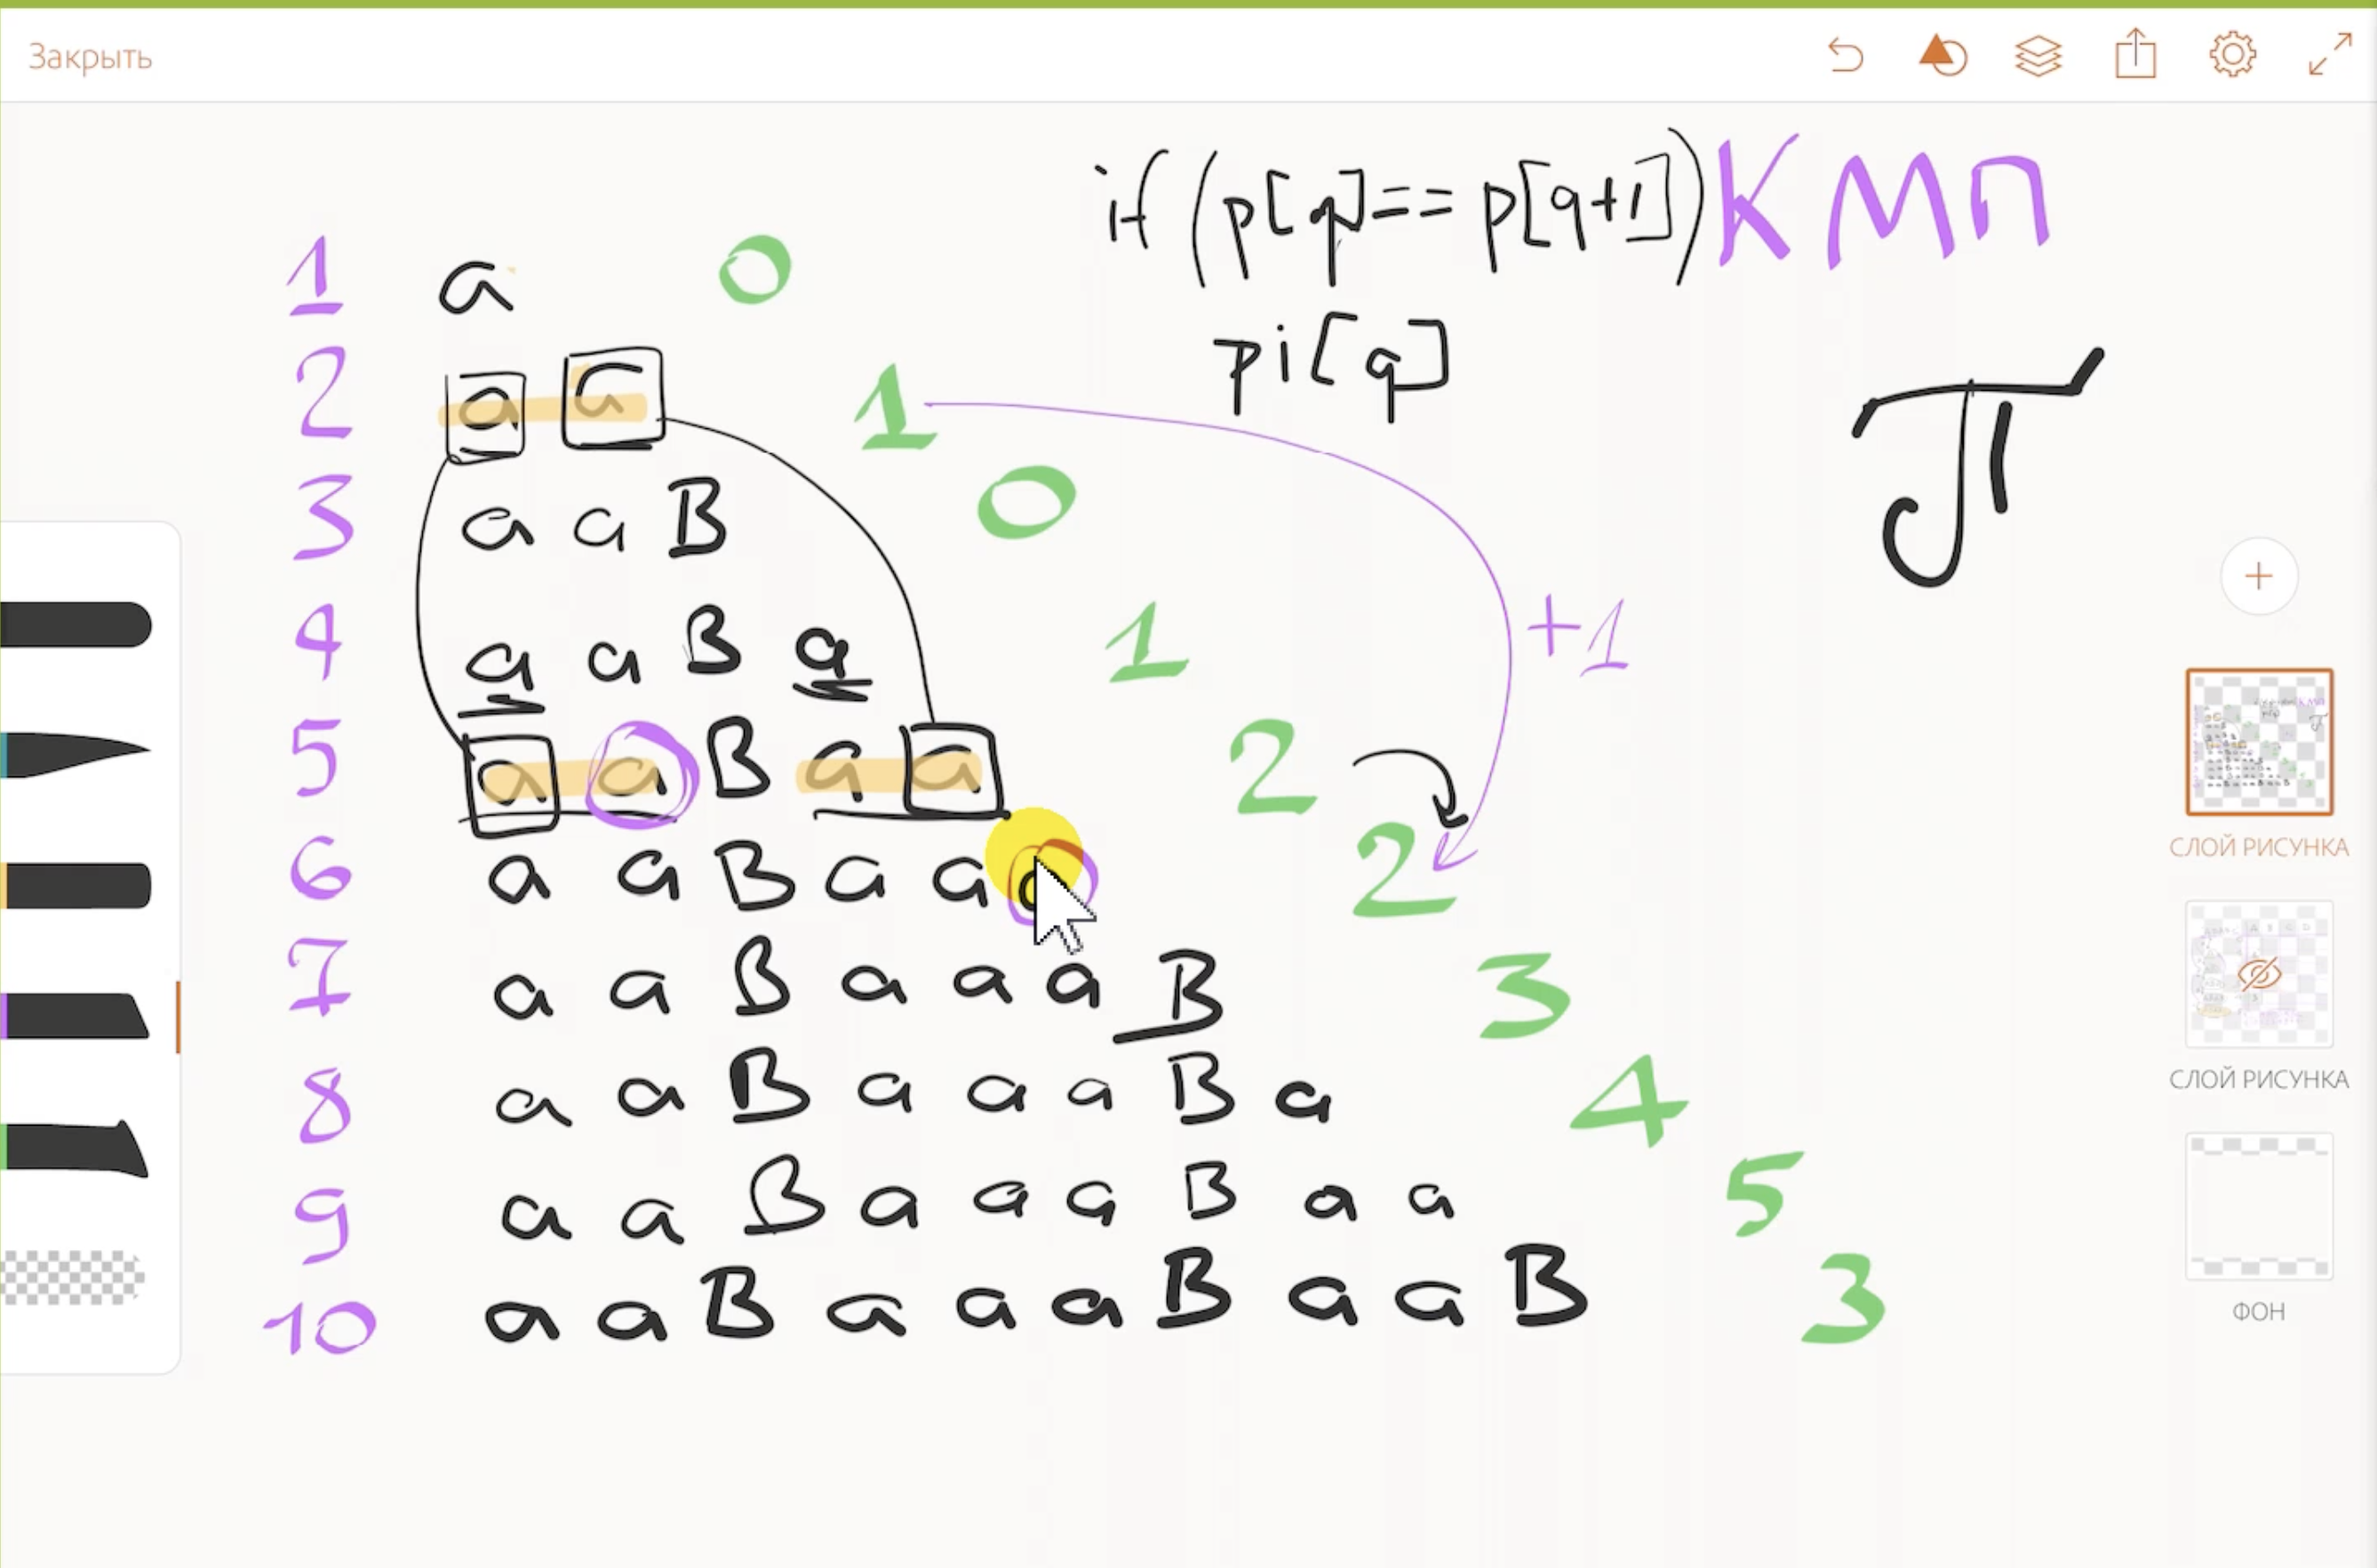 Закрыть
if (p[q]== p[q+1]) КМП
pi[q]
π
1 a 0
2 a a 1
3 a a B 0
4 a a B a 1
+1
5 a a B a a 2
6 a a B a a a 2
7 a a B a a a B 3
8 a a B a a a B a 4
9 a a B a a a B a a 5
10 a a B a a a B a a B 3
СЛОЙ РИСУНКА
СЛОЙ РИСУНКА
ФОН